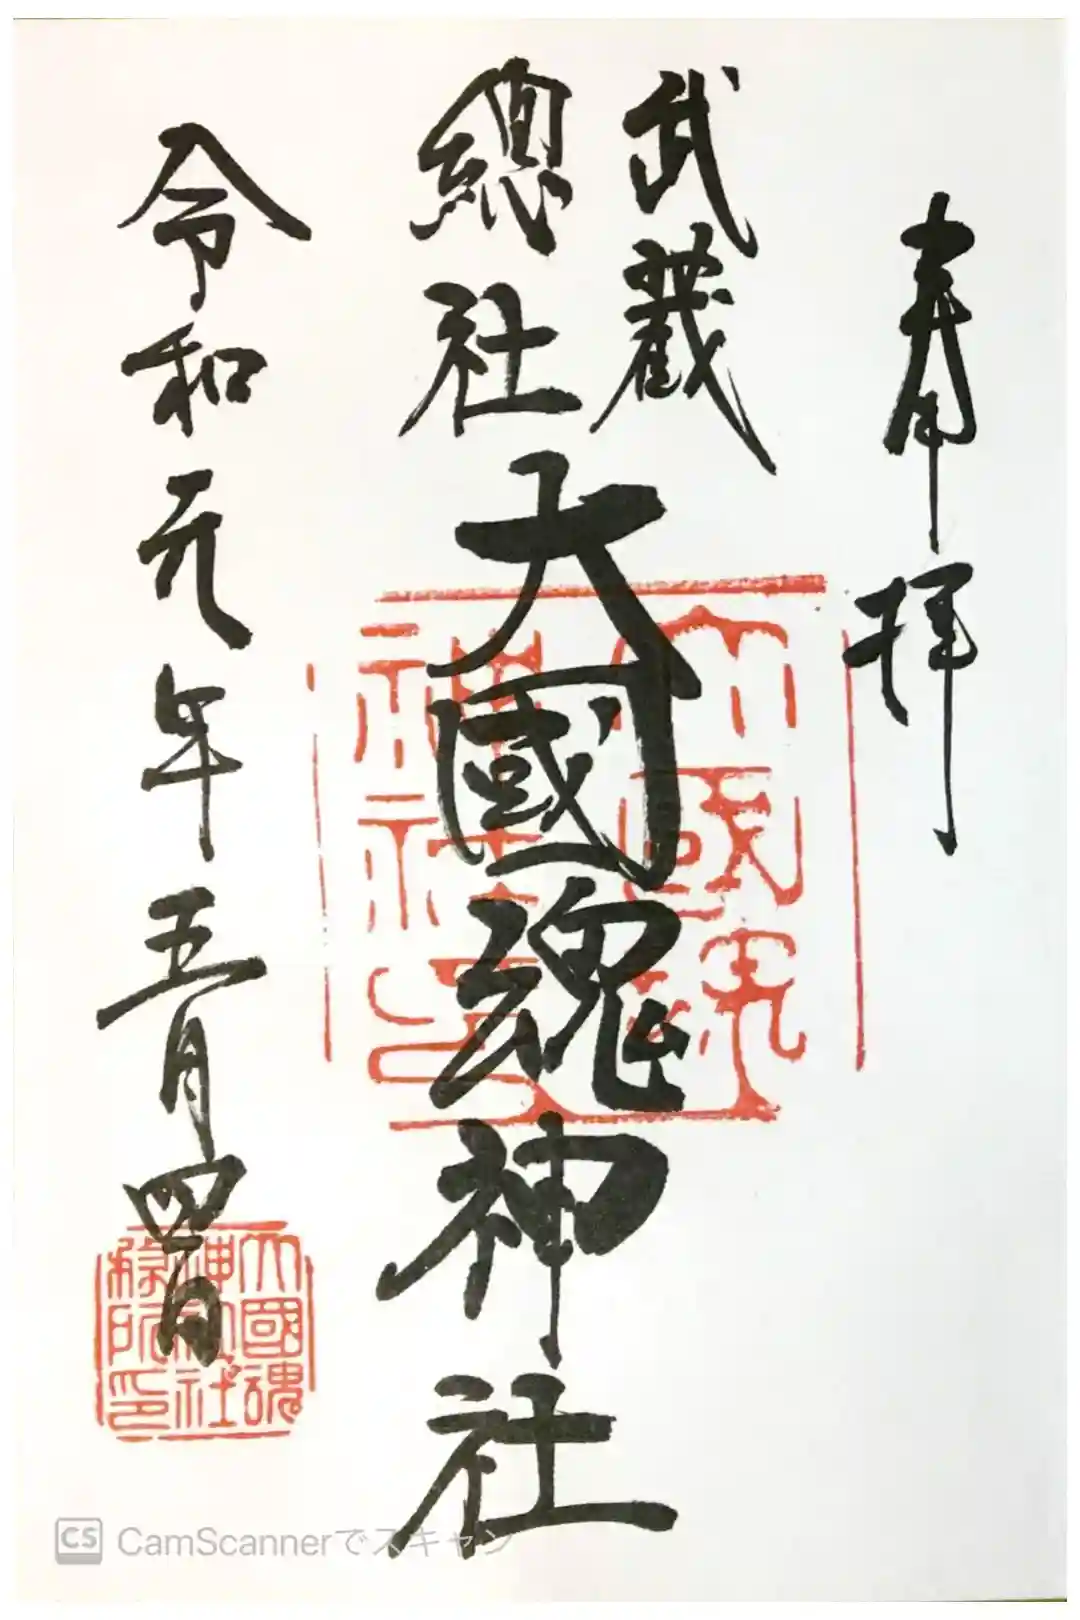 奉拝
武蔵
總社
大國魂神社
令和元年五月四日
大國魂
神社印
大國魂
神社社
務所印
CS CamScannerでスキャン